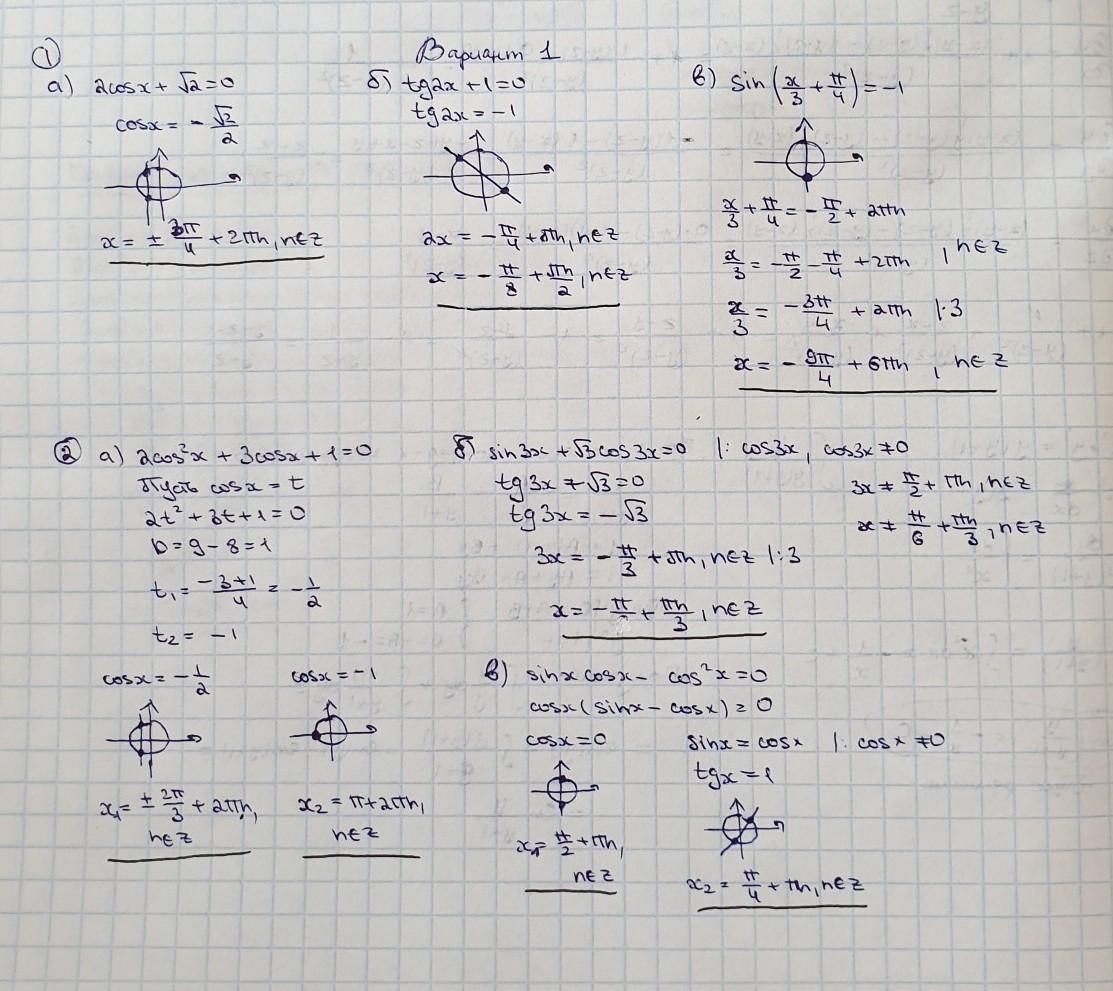 Вариант 1
①
а) 2cosx + √2 = 0
cosx = - √2/2
x = ± 3π/4 + 2πn, n∈Z
б) tg2x + 1 = 0
tg2x = -1
2x = - π/4 + πn, n∈Z
x = - π/8 + πn/2, n∈Z
в) sin(x/3 + π/4) = -1
x/3 + π/4 = - π/2 + 2πn
x/3 = - π/2 - π/4 + 2πn , n∈Z
x/3 = -3π/4 + 2πn |·3
x = - 9π/4 + 6πn , n∈Z
② а) 2cos²x + 3cosx + 1 = 0
Пусть cosx = t
2t² + 3t + 1 = 0
D = 9 - 8 = 1
t₁ = (-3+1)/4 = - 1/2
t₂ = -1
cosx = - 1/2
x₁ = ± 2π/3 + 2πn,
n∈Z
cosx = -1
x₂ = π + 2πn,
n∈Z
б) sin3x + √3cos3x = 0 |: cos3x, cos3x ≠ 0
tg3x + √3 = 0
tg3x = -√3
3x = - π/3 + πn, n∈Z |:3
x = - π/ + πn/3, n∈Z
3x ≠ π/2 + πn, n∈Z
x ≠ π/6 + πn/3, n∈Z
в) sinx cosx - cos²x = 0
cosx(sinx - cosx) = 0
cosx = 0
x₁ = π/2 + πn,
n∈Z
sinx = cosx |: cosx ≠ 0
tgx = 1
x₂ = π/4 + πn, n∈Z